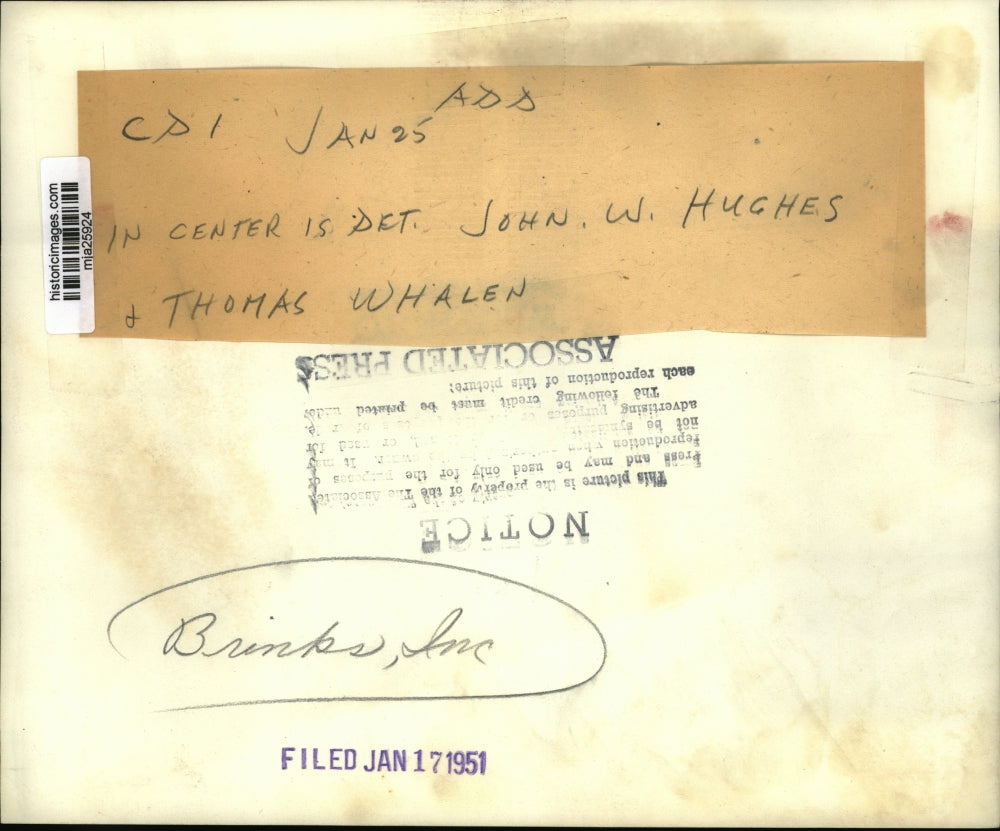 ADD
CD1 JAN 25
IN CENTER IS DET. JOHN. W. HUGHES
& THOMAS WHALEN
historicimages.com
mja25924
NOTICE
This picture is the property of the The Associated
Press and may be used only for the purposes of
reproduction It may
not be or used for
advertising purposes
The following credit must be printed under
each reproduction of this picture:
ASSOCIATED PRESS
Brinks, Inc
FILED JAN 17 1951